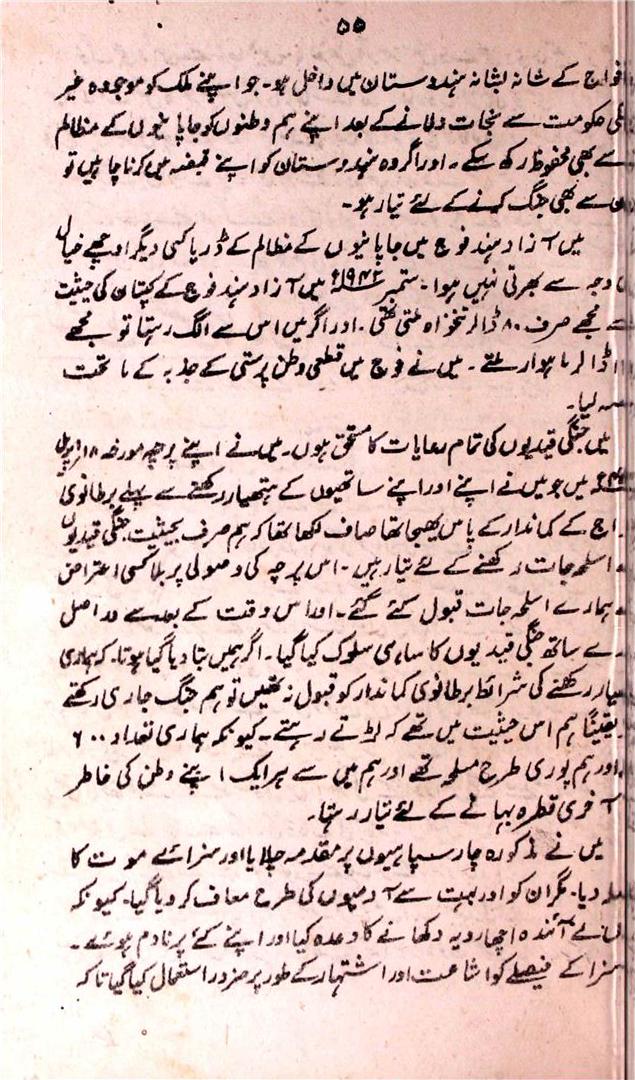 ۵۵
افواج کے شانہ بشانہ ہندوستان میں داخل ہو۔ جو اپنے ملک کو موجودہ غیر
ملکی حکومت سے نجات دلانے کے بعد اپنے ہم وطنوں کو جاپانیوں کے مظالم
سے بھی محفوظ رکھ سکے۔ اور اگر وہ ہندوستان کو اپنے قبضہ میں کرنا چاہیں تو
ان سے بھی جنگ کرنے کے لئے تیار ہو۔
میں آزاد ہند فوج میں جاپانیوں کے مظالم کے ڈر یا کسی دیگر اوچھے خیال
کی وجہ سے بھرتی نہیں ہوا۔ ستمبر ۱۹۴۲ء میں آزاد ہند فوج کے کپتان کی حیثیت
سے مجھے صرف ۸۰ ڈالر تنخواہ ملتی تھی۔ اور اگر میں اس سے الگ رہتا تو مجھے
ڈالر ماہوار ملتے۔ میں نے فوج میں قطعی وطن پرستی کے جذبہ کے ماتحت
حصہ لیا۔
میں جنگی قیدیوں کی تمام رعایات کا مستحق ہوں۔ میں نے اپنے پرچہ مورخہ ۱۸ اپریل
میں جو میں نے اپنے اور اپنے ساتھیوں کے ہتھیار رکھنے سے پہلے برطانوی
افواج کے کماندار کے پاس بھیجا تھا صاف لکھا تھا کہ ہم صرف بحیثیت جنگی قیدیوں
کے اسلحہ جات رکھنے کے لئے تیار ہیں۔ اس پرچہ کی وصولی پر بلا کسی اعتراض
کے ہمارے اسلحہ جات قبول کئے گئے۔ اور اس وقت کے بعد سے دراصل
ہمارے ساتھ جنگی قیدیوں کا سا ہی سلوک کیا گیا۔ اگر ہمیں بتا دیا گیا ہوتا۔ کہ ہماری
ہتھیار رکھنے کی شرائط برطانوی کماندار کو قبول نہ تھیں تو ہم جنگ جاری رکھتے
یقیناً ہم اس حیثیت میں تھے کہ لڑتے رہتے۔ کیونکہ ہماری تعداد ۶۰۰
اور ہم پوری طرح مسلح تھے اور ہم میں سے ہر ایک اپنے وطن کی خاطر
آخری قطرہ بہانے کے لئے تیار رہتا۔
میں نے مذکورہ چار سپاہیوں پر مقدمہ چلایا اور سزائے موت کا
فیصلہ دیا۔ مگر ان کو اور بہت سے آدمیوں کی طرح معاف کر دیا گیا۔ کیونکہ
انہوں نے آئندہ اچھا رویہ دکھانے کا وعدہ کیا اور اپنے کئے پر نادم ہوئے۔
سزا کے فیصلے کو اشاعت اور اشتہار کے طور پر ضرور استعمال کیا گیا تاکہ